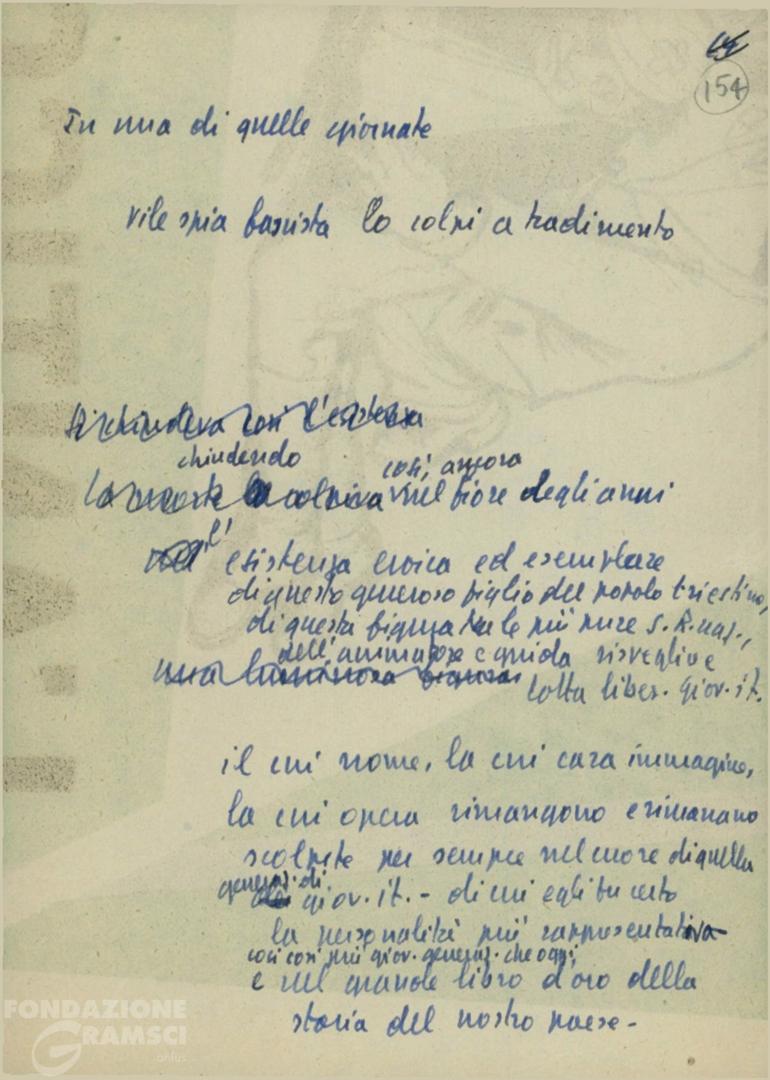 154
In una di quelle giornate
vile spia fascista lo colpì a tradimento
Si chiudeva così l'esistenza
chiudendo così, ancora
La morte lo colpiva nel fiore degli anni
l'
esistenza eroica ed esemplare
di questo generoso figlio del popolo triestino,
di questa figura tra le più pure S. R. naz.,
dell'animatore e guida risveglio e
una luminosa figura lotta liber. giov. it.
il cui nome, la cui cara immagine,
la cui opera rimangono e rimarranno
scolpite per sempre nel cuore di quella
generaz. di
giov. it. - di cui egli fu certo
la personalità più rappresentativa
così così più giov. generaz. che oggi
e nel grande libro d'oro della
storia del nostro paese -
FONDAZIONE
GRAMSCI
onlus